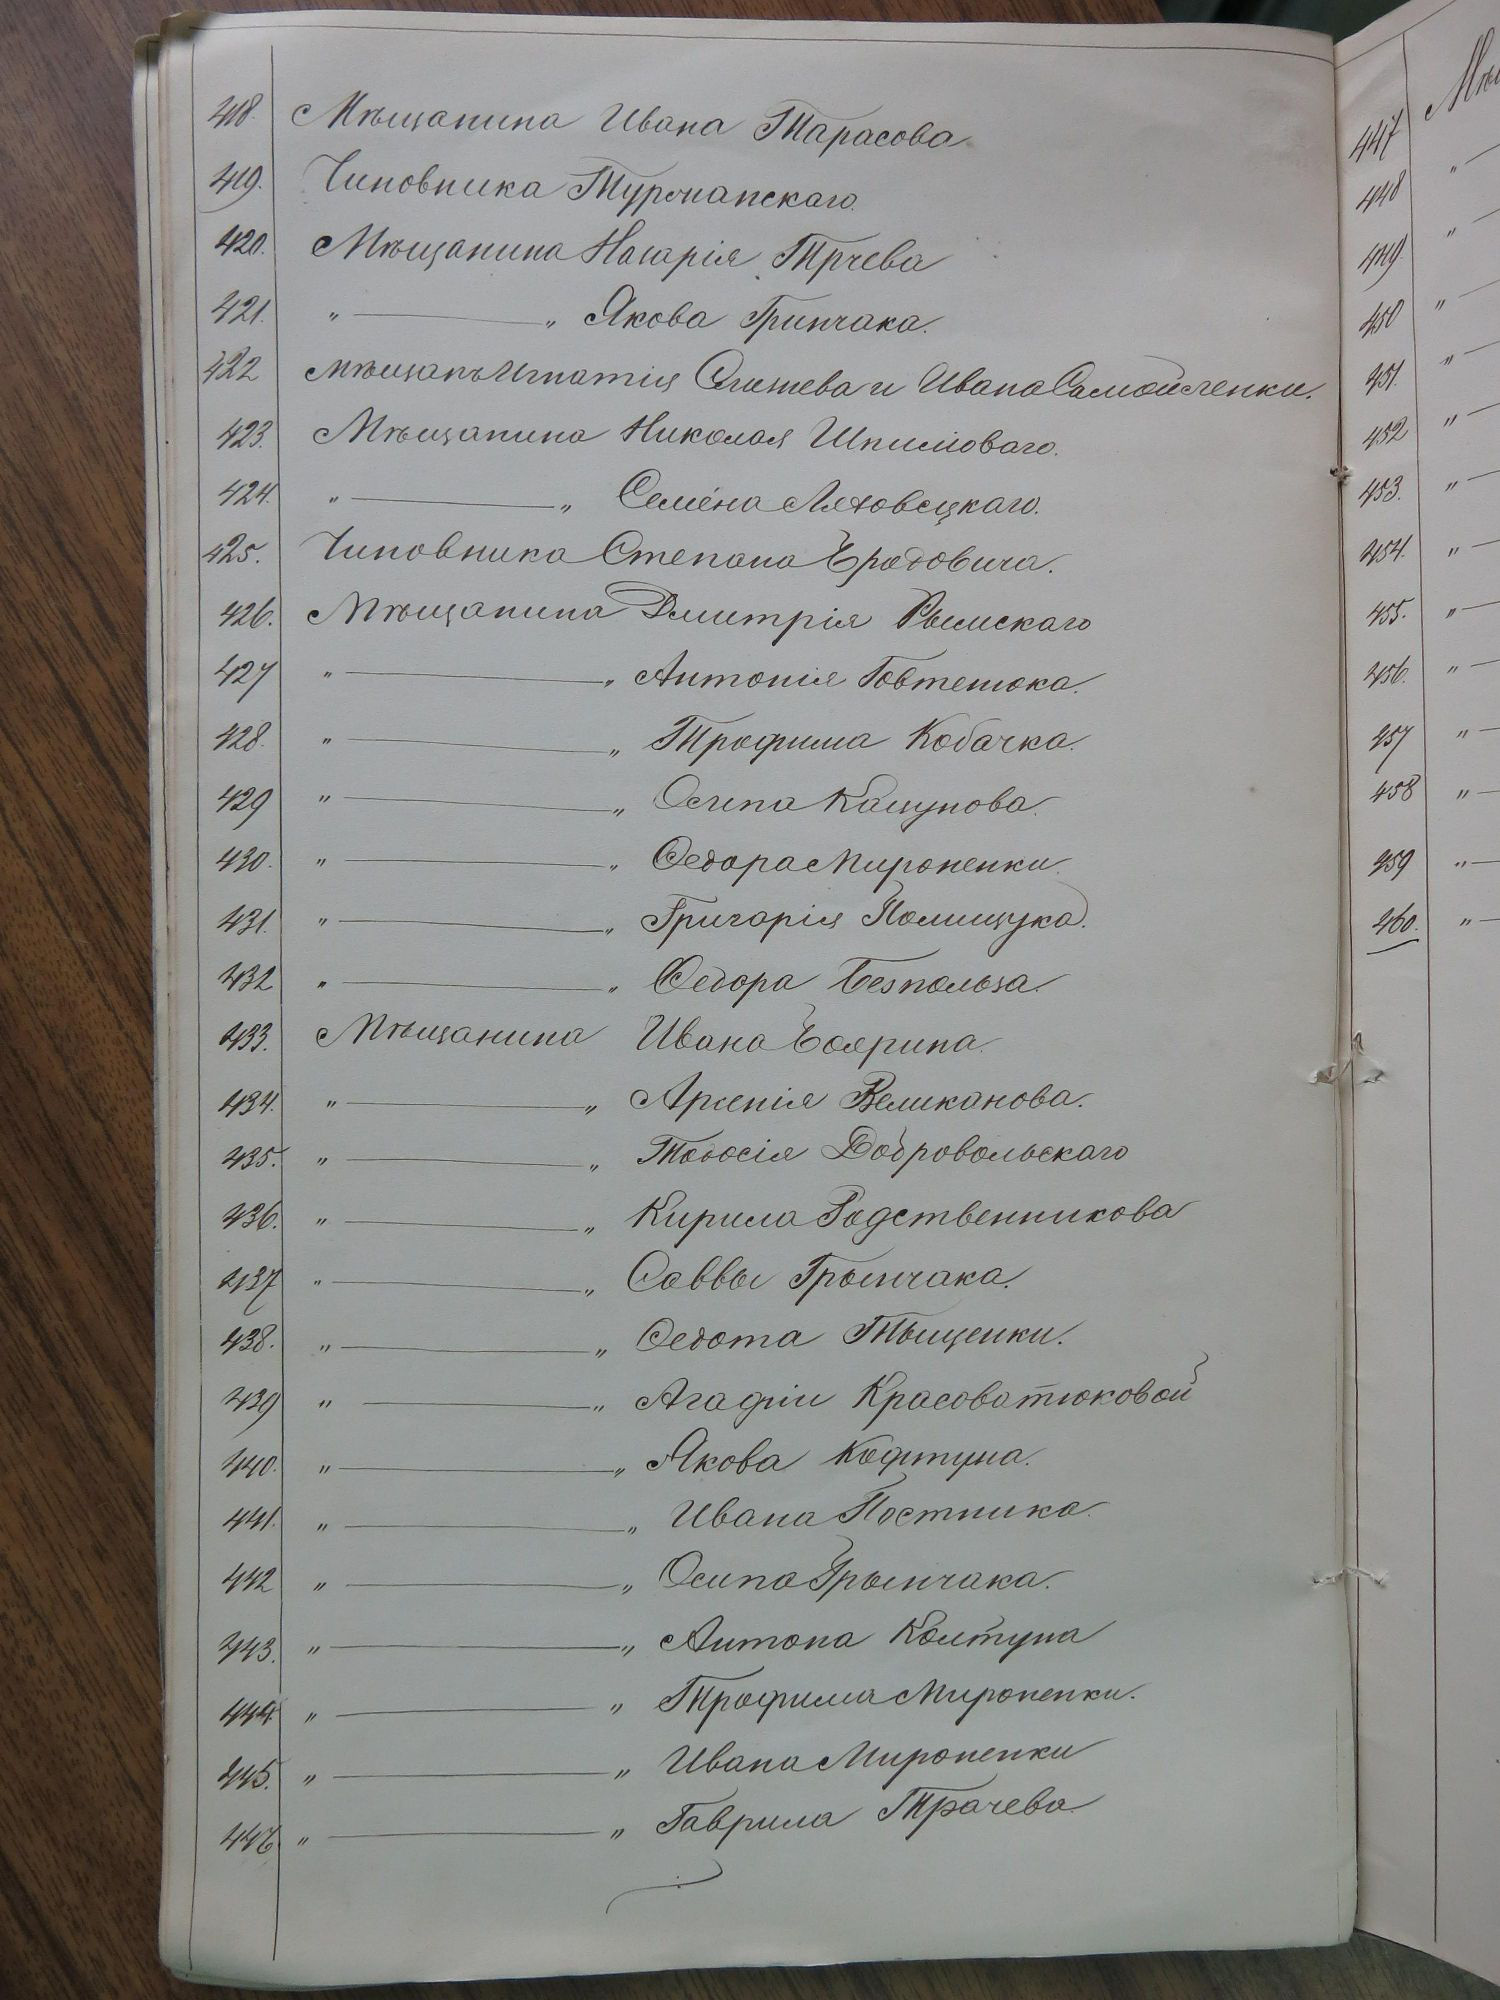 418. Мѣщанина Ивана Тарасова.
419. Чиновника Турчанскаго.
420. Мѣщанина Назарія Трчева
421. " — " Якова Гринчака.
422 Мѣщанъ Игнатія и Ивана Самойленки.
423. Мѣщанина Николая
424. " — " Семёна Ляховецкаго.
425. Чиновника Степана Бродовича.
426. Мѣщанина Дмитрія Рымскаго
427 " — " Антонія Говтенюка.
428. " — " Трофима Кобачка.
429 " — " Осипа Кацунова.
430. " — " Ѳедора Мироненки.
431. " — " Григорія Полищука.
432 " — " Ѳедора Безпольза.
433. Мѣщанина Ивана Боярина.
434. " — " Арсенія Великанова.
435. " — " Добровольскаго
436. " — " Кирила Родственникова
437 " — " Саввы Грынчака.
438. " — " Ѳедота Тыщенки.
439 " — " Агафіи Красоватюковой
440. " — " Якова Кофтуна.
441. " — " Ивана Постника.
442 " — " Осипа Грынчака.
443. " — " Антона Колтуна
444 " — " Трофима Мироненки.
445. " — " Ивана Мироненки
446 " — " Гаврила Трачева.
447
448 "
449 "
450 "
451. "
452 "
453. "
454. "
455. "
456. "
457 "
458 "
459 "
460. "